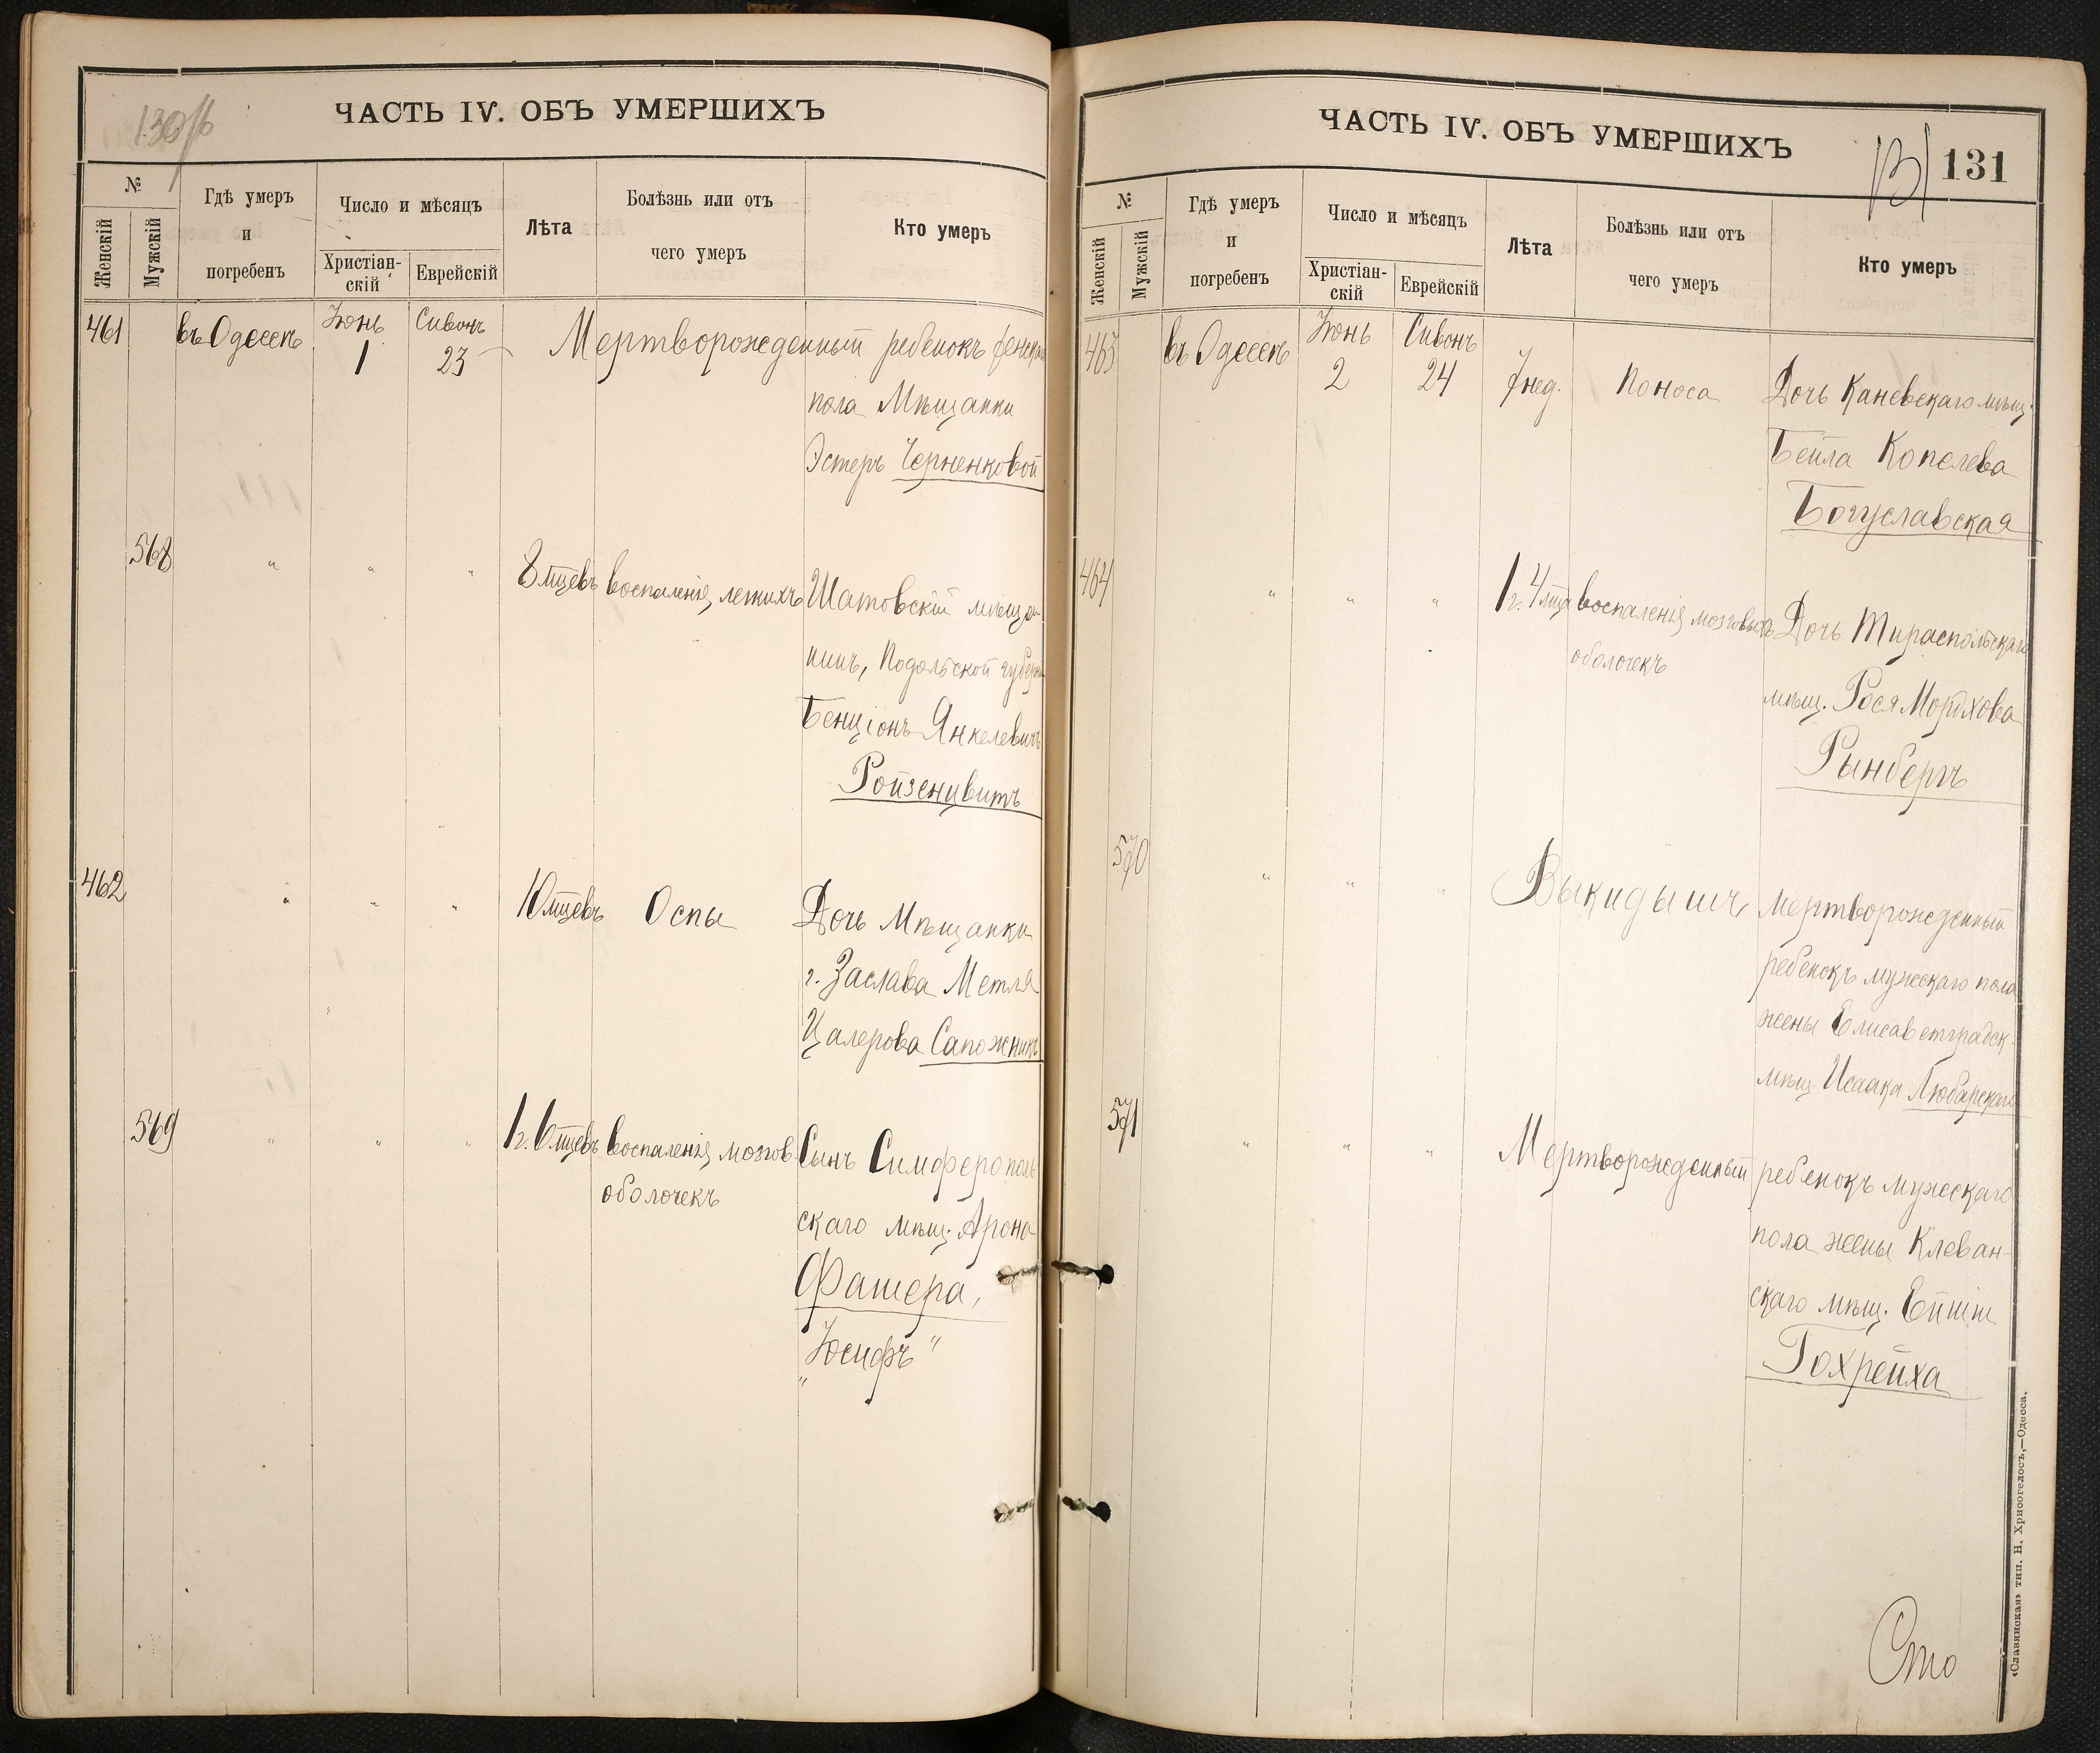 130/б
ЧАСТЬ IV. ОБЪ УМЕРШИХЪ
№
Женскій
Мужскій
Гдѣ умеръ
и
погребенъ
Число и мѣсяцъ
Христіан-
скій
Еврейскій
Лѣта
Болѣзнь или отъ
чего умеръ
Кто умеръ
461 въ Одессѣ Іюнь 1 Сивонъ 23 Мертворожденный ребенокъ женскаго
пола Мѣщанки
Эстеръ Черненковой
568 " " " 8 мцевъ воспаленія легкихъ Шатовскій мѣща-
нинъ, Подольской губерніи
Бенціонъ Янкелевичъ
Ройзенцвитъ
462 " " " 10 мцевъ Оспы Дочь Мѣщанки
г. Заслава Метля
Цалерова Сапожникъ
569 " " " 1 г. 6 мцевъ воспаленія мозгов. Сынъ Симферополь-
оболочекъ
скаго мѣщ. Арона
Фашера,
"Іосифъ"
ЧАСТЬ IV. ОБЪ УМЕРШИХЪ
131 131
№
Женскій
Мужскій
Гдѣ умеръ
и
погребенъ
Число и мѣсяцъ
Христіан-
скій
Еврейскій
Лѣта
Болѣзнь или отъ
чего умеръ
Кто умеръ
463 въ Одессѣ Іюнь 2 Сивонъ 24 7 нед. Поноса Дочь Каневскаго мѣщ.
Бейла Копелева
Богуславская
464 " " " 1 г. 4 мца воспаленія мозговыхъ Дочь Тираспольскаго
оболочекъ
мѣщ. Рося Мордхова
Рынбергъ
570 " " " Выкидышъ, мертворожденный
ребенокъ мужескаго пола
жены Елисаветградск.
мѣщ. Исаака Любарскаго
571 " " " Мертворожденный ребенокъ мужескаго
пола жены Клеван-
скаго мѣщ.
Гохрейха
Сто
«Славянская» тип. Н. Хрисогелосъ,—Одесса.